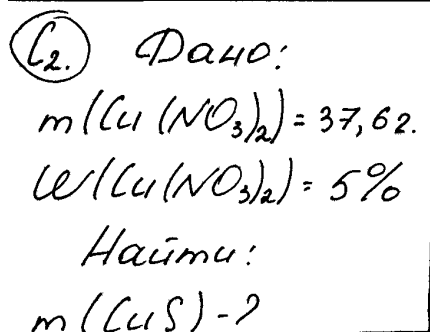 C2. Дано:
m(Cu(NO3)2) = 37,6г.
W(Cu(NO3)2) = 5%
Найти:
m(CuS) - ?